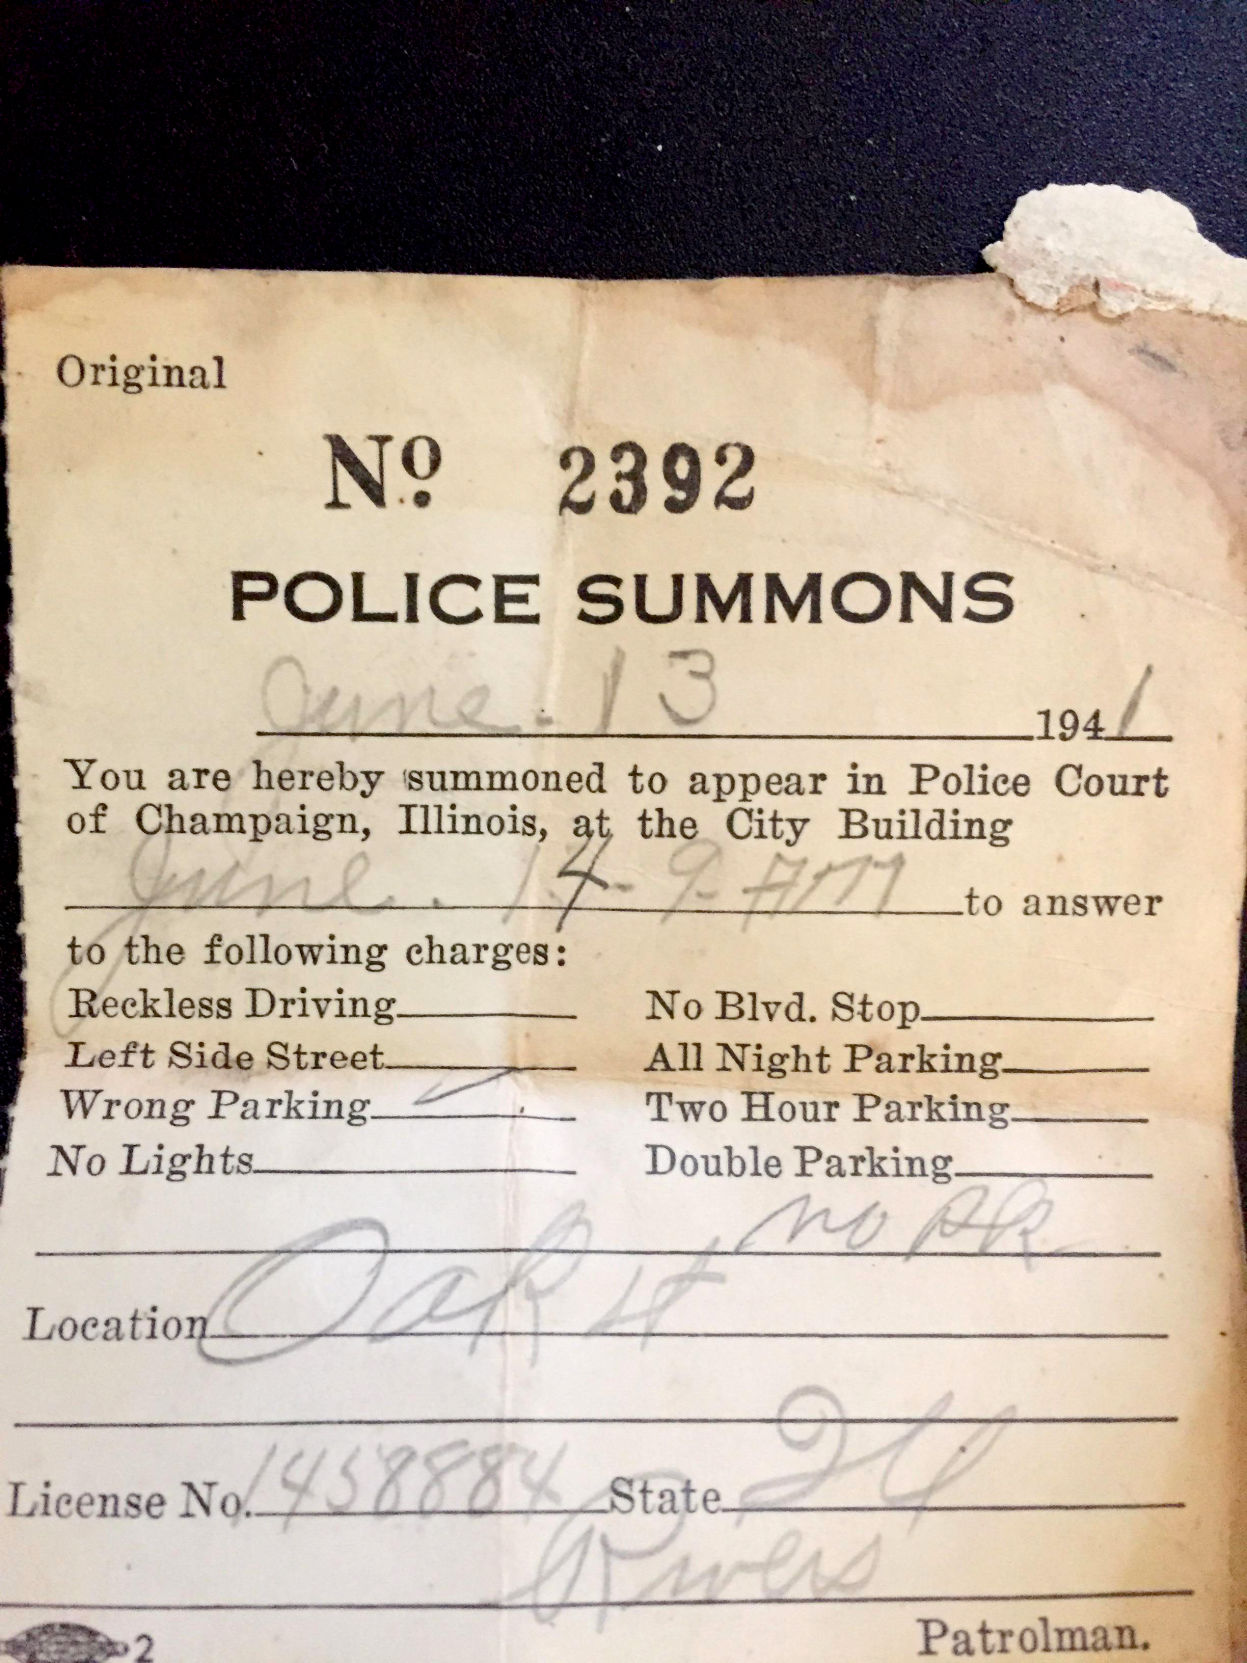 Original
No. 2392
POLICE SUMMONS
June. 13 1941
You are hereby summoned to appear in Police Court
of Champaign, Illinois, at the City Building
June. 14 - 9 - AM to answer
to the following charges:
Reckless Driving No Blvd. Stop
Left Side Street All Night Parking
Wrong Parking Two Hour Parking
No Lights Double Parking
no PK
Location Oak st
License No. 1458884 State Ill
Rivers
2 Patrolman.